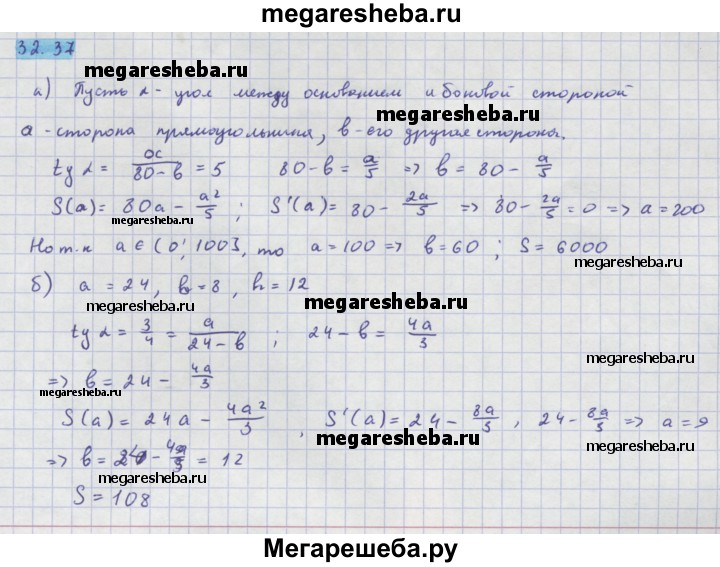 megaresheba.ru
32.37
megaresheba.ru
а) Пусть α - угол между основанием и боковой стороной
megaresheba.ru
a - сторона прямоугольника, b - его другая сторона.
tg α = a/(80-b) = 5    80-b = a/5 => b = 80 - a/5
S(a) = 80a - a²/5 ; S'(a) = 80 - 2a/5 => 80 - 2a/5 = 0 => a = 200
megaresheba.ru
Но т.к a ∈ (0; 100], то a = 100 => b = 60 ; S = 6000
megaresheba.ru
б) a = 24, b = 8, h = 12
megaresheba.ru
megaresheba.ru
tg α = 3/4 = a/(24-b) ; 24-b = 4a/3
megaresheba.ru
=> b = 24 - 4a/3
megaresheba.ru
S(a) = 24a - 4a²/3 , S'(a) = 24 - 8a/3 , 24 - 8a/3 => a = 9
megaresheba.ru
=> b = 24 - 4a/3 = 12
megaresheba.ru
megaresheba.ru
S = 108
Мегарешеба.ру